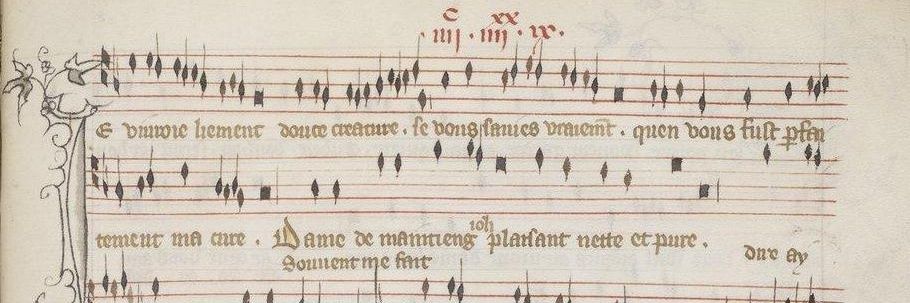 c xx
.iiii.iiii.ix.
E viuroie liement douce creature. se vous sauies vraiemt. quen vous fust pfai
tement ma cure. Dame de maintieng ioli plaisant nette et pure.
Souuent me fait dire ay